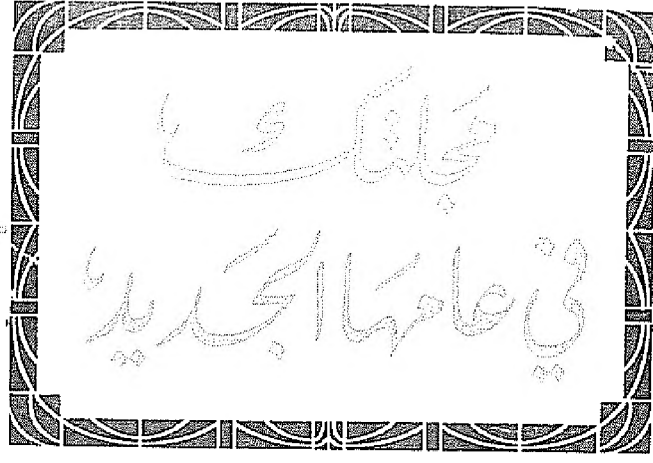 مجلتك
في عامها الجديد